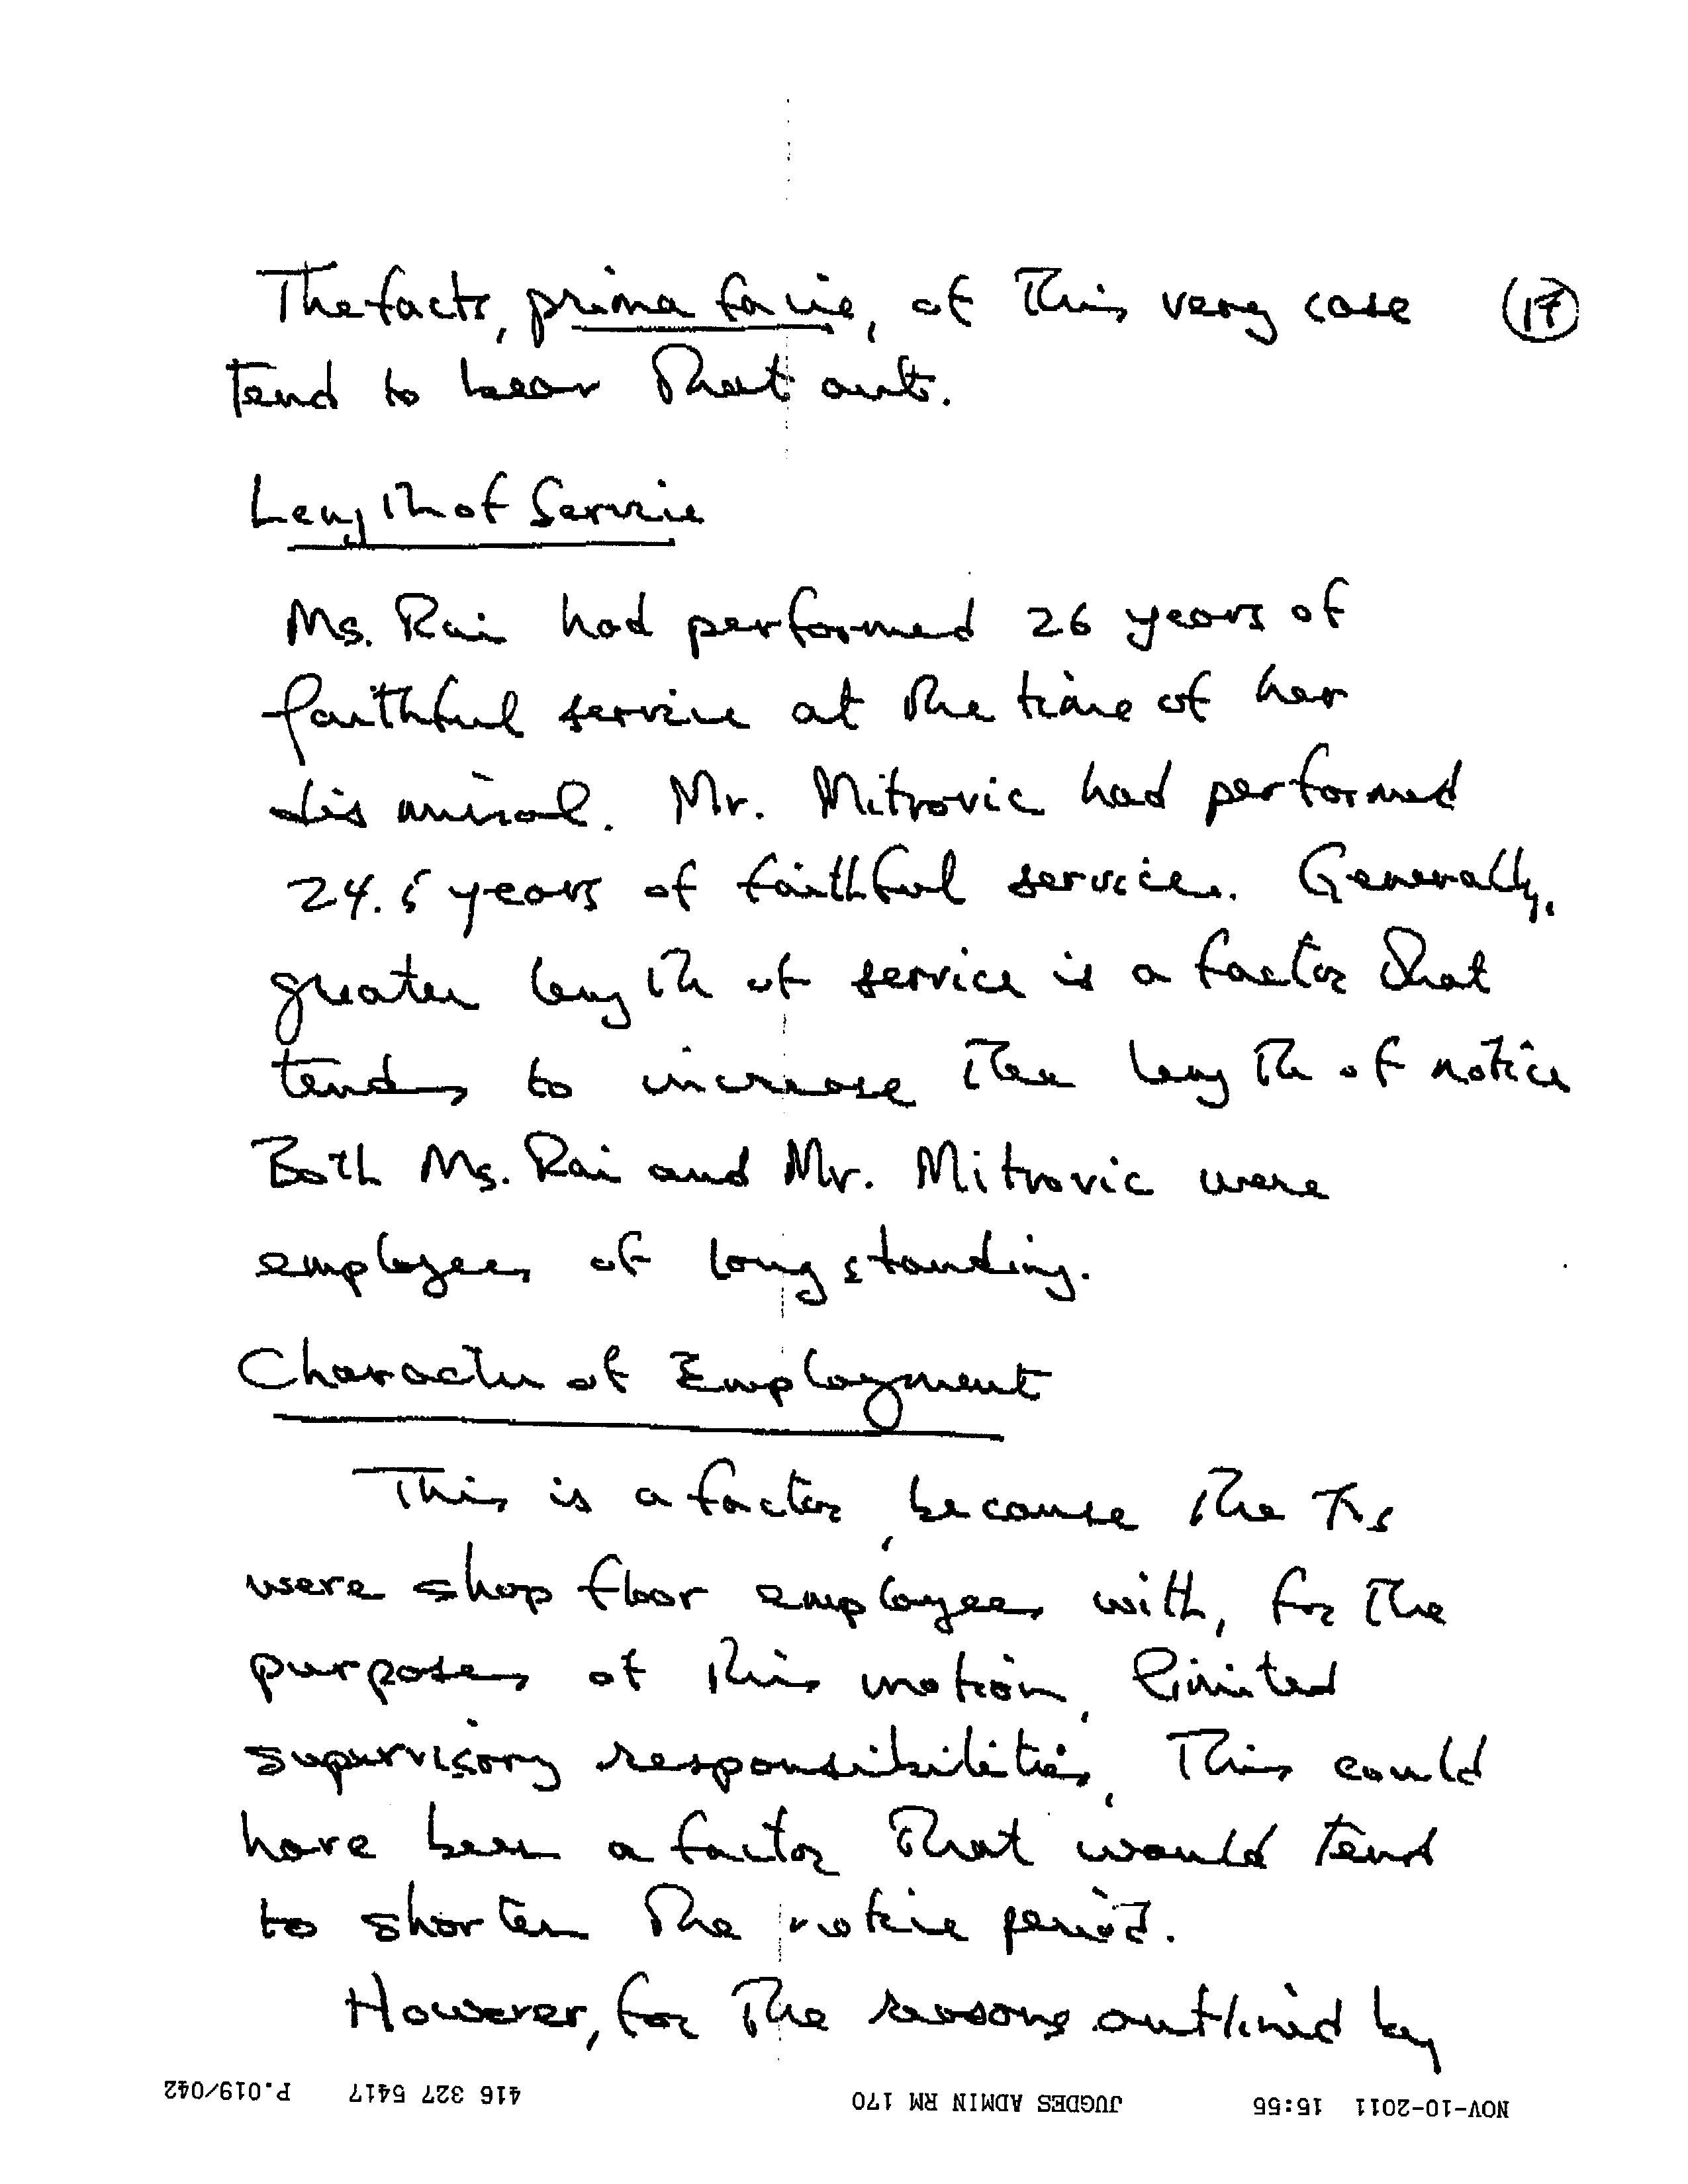 The facts, prima facie, of this very case (17)
tend to bear that out.
Length of Service
Ms. Rai had performed 26 years of
faithful service at the time of her
dismissal. Mr. Mitrovic had performed
24.5 years of faithful service. Generally,
greater length of service is a factor that
tends to increase the length of notice
Both Ms. Rai and Mr. Mitrovic were
employees of long standing.
Character of Employment
This is a factor, because the πs
were shop floor employees with, for the
purposes of this motion, limited
supervisory responsibilities, This could
have been a factor that would tend
to shorten the notice period.
However, for the reasons outlined by
NOV-10-2011 15:55 JUGDES ADMIN RM 170 416 327 5417 P.019/042